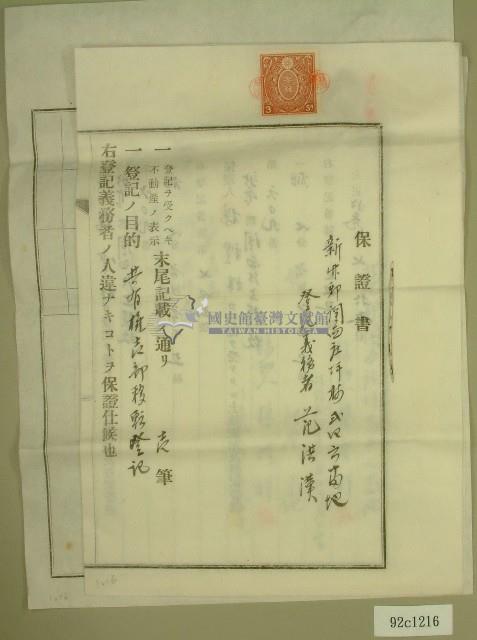 保證書
新竹郡關西庄坪林弐四六番地
登記義務者 范洪漢
一 登記ヲ受クヘキ不動産ノ表示 末尾記載ノ通リ 壱筆
一 登記ノ目的 共有持分全部移轉登記
右登記義務者ノ人違ナキコトヲ保證仕候也
國史館臺灣文獻館
TAIWAN HISTORICA
3 Sn
92c1216